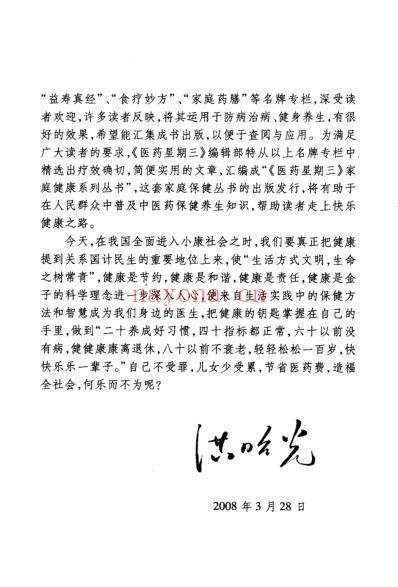 “益寿真经”、“食疗妙方”、“家庭药膳”等名牌专栏,深受读
者欢迎,许多读者反映,将其运用于防病治病、健身养生,有很
好的效果,希望能汇集成书出版,以便于查阅与应用。为满足
广大读者的要求,《医药星期三》编辑部特从以上名牌专栏中
精选出疗效确切,简便实用的文章,汇编成“《医药星期三》家庭
健康系列丛书”,这套家庭保健丛书的出版发行,将有助于
在人民群众中普及中医药保健养生知识,帮助读者走上快乐
健康之路。
今天,在我国全面进入小康社会之时,我们要真正把健康
提到关系国计民生的重要地位上来,使“生活方式文明,生命
之树常青”,健康是节约,健康是和谐,健康是责任,健康是金
子的科学理念进一步深入人心,使来自生活实践中的保健方
法和智慧成为我们身边的医生,把健康的钥匙掌握在自己的
手里,做到“二十养成好习惯,四十指标都正常,六十以前没
有病,健健康康离退休,八十以前不衰老,轻轻松松一百岁,快
快乐乐一辈子。”自己不受罪,儿女少受累,节省医药费,造福
全社会,何乐而不为呢?
洪昭光
2008 年 3 月 28 日